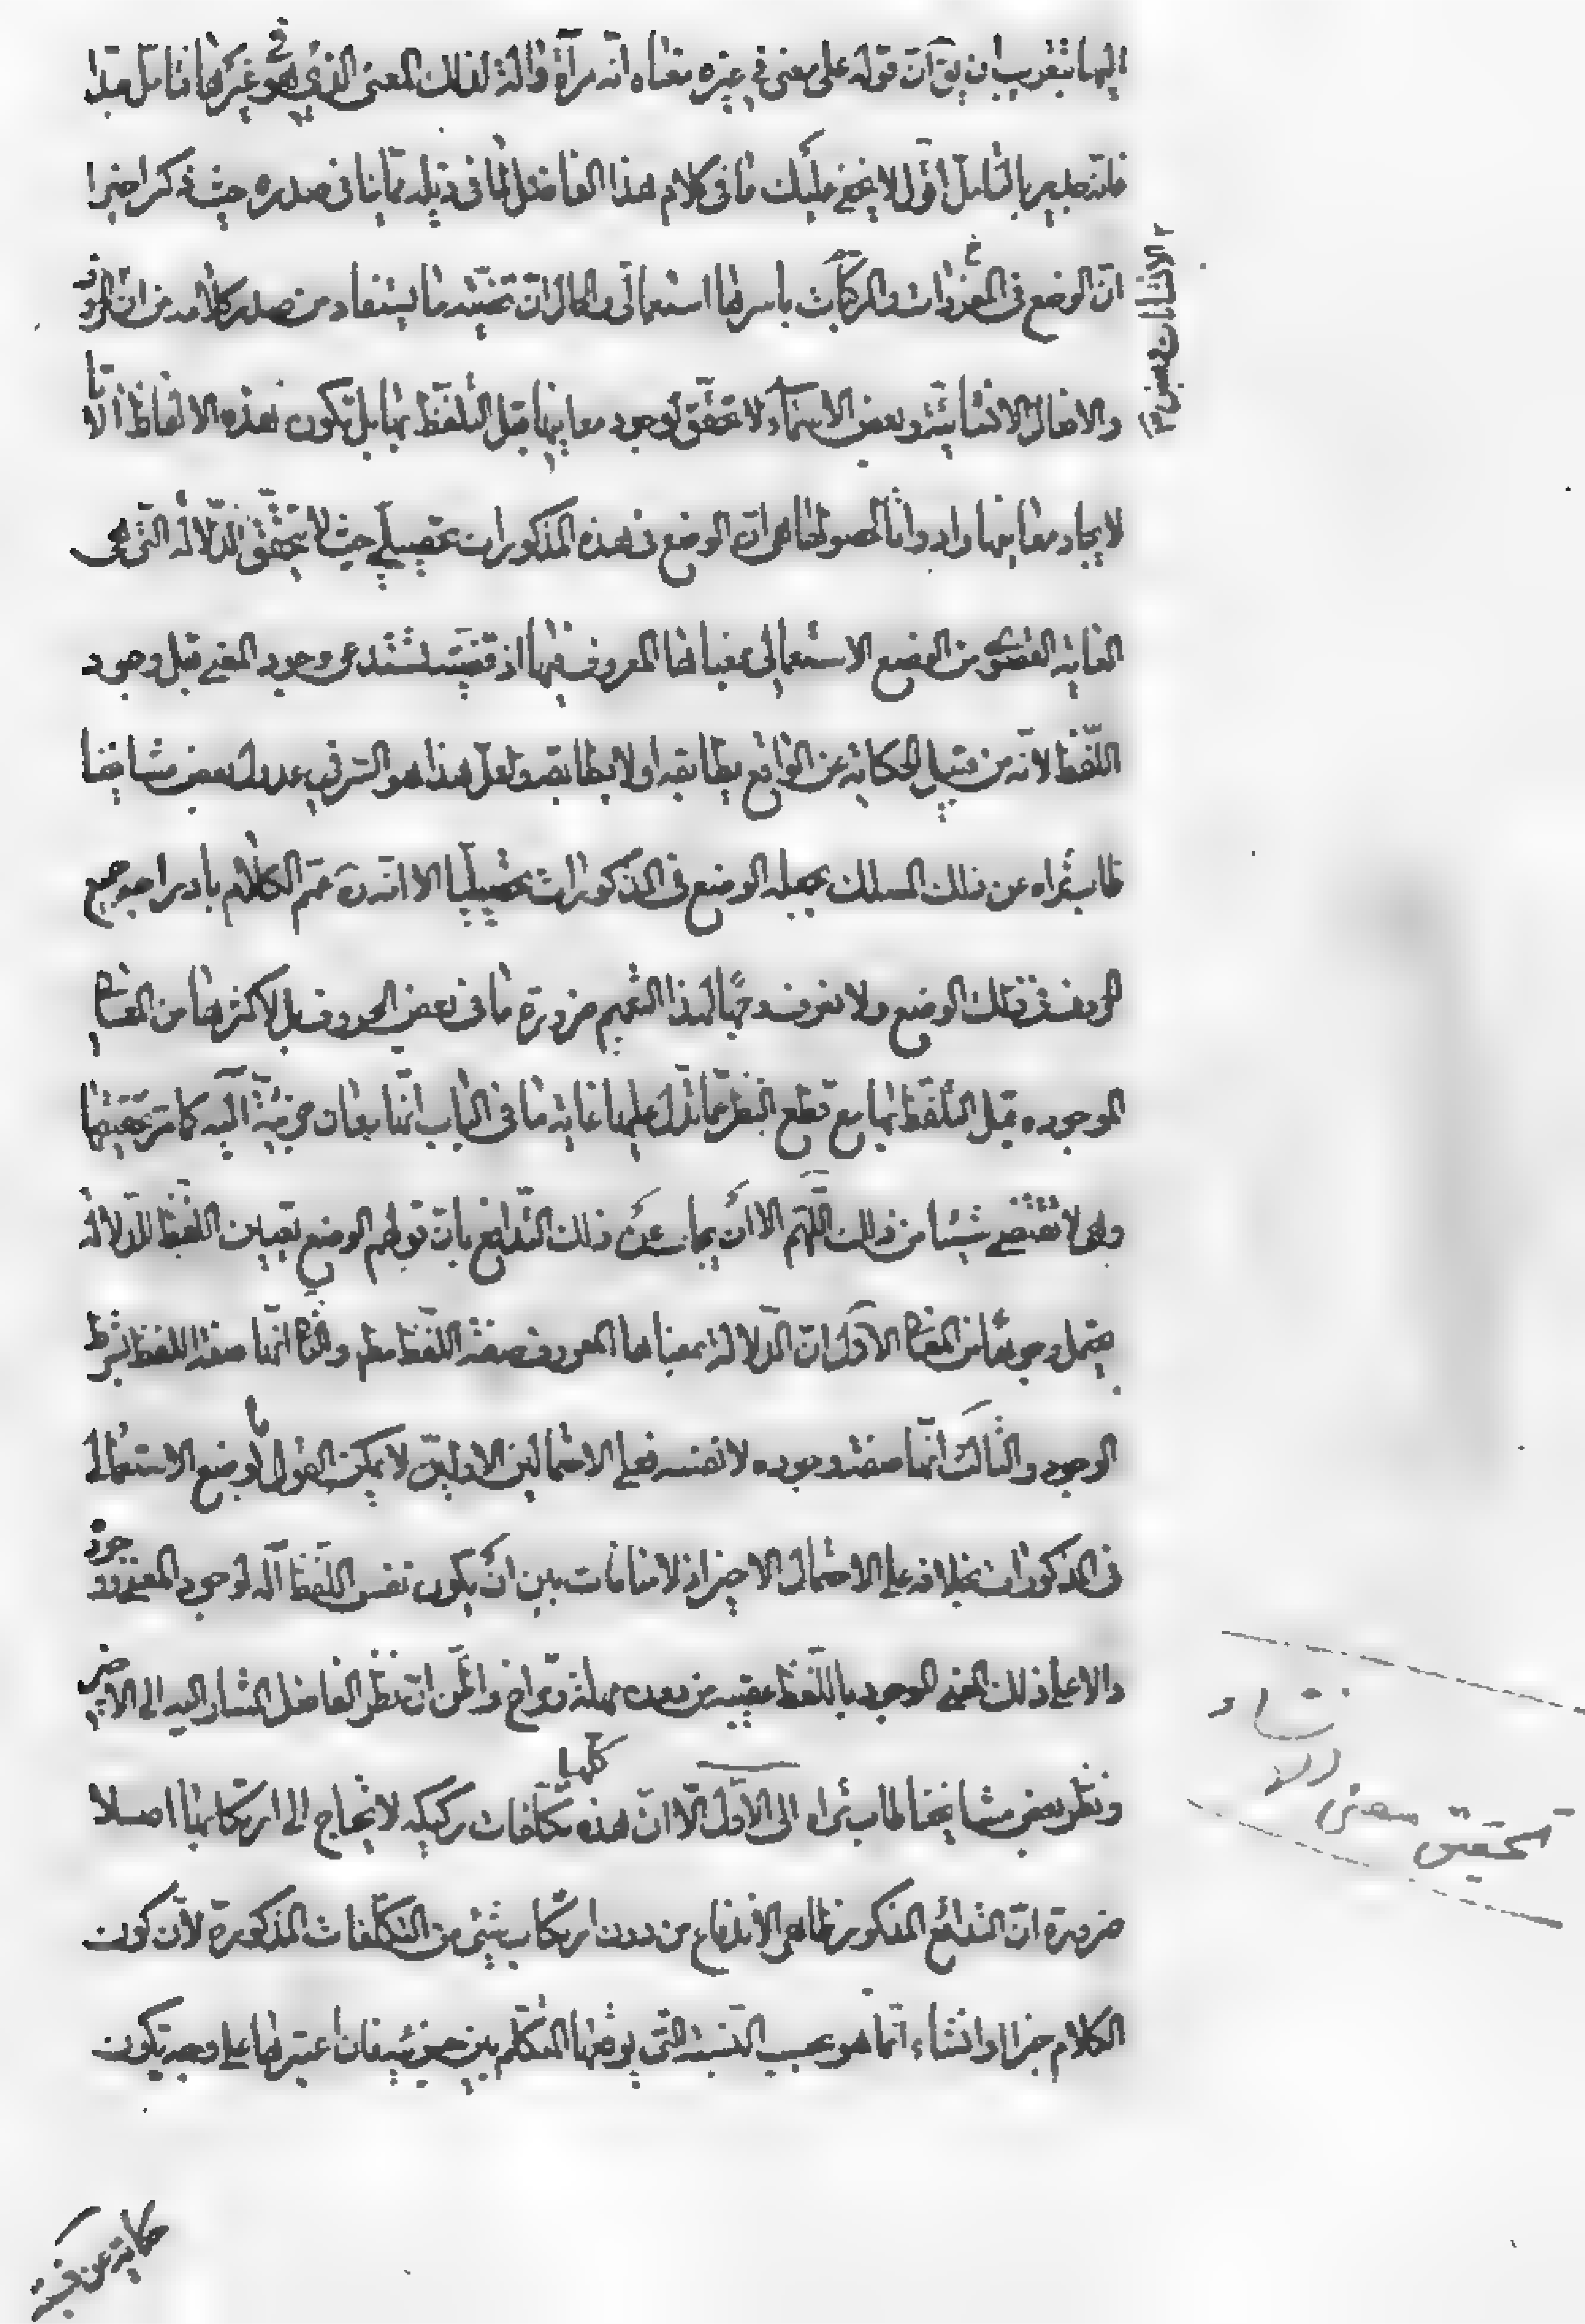 اليها بتقريب ان يق ان قوله على معنى في غيره معناه انه مرآة والة لذلك المعنى الذي هو في غيرها فتامل جدا
فانه جدير بالتامل اقول لا يخفى عليك ما في كلام هذا الفاضل لما في ذيله مما ينافى صدره حيث ذكر اخيرا
ان الوضع فى المفردات والمركبات باسرها استعمالى والحال ان قضيته ما يستفاد من صدر كلامه من ان الحروف
والافعال الانشائية وبعض الاسماء لا تحقق لوجود معانيها قبل التلفظ بها بل تكون هذه الالفاظ الات
لايجاد معانيها وادواتا لحصولها هى ان الوضع فى هذه المذكورات تحصيلي حيث لا يتحقق الدلالة التى هى
الغاية القصوى من الوضع الاستعمالى بمعناها المعروف فيها اذ قضيته تستدعى وجود المعنى قبل وجود
اللفظ لانه من قبيل الحكاية عن الواقع يطابقه او لا يطابقه ولعل هذا هو السر في عدول بعض مشايخنا
طاب ثراه عن ذلك المسلك بجعله الوضع فى المذكورات تحصيليا الا انه ره عمم الكلام بادراجه جميع
الحروف في ذلك الوضع ولا نعرف وجها لهذا التعميم ضرورة ما فى بعض الحروف بل اكثرها من المعانى
الموجوده قبل التلفظ بها مع قطع النظر عما تدل عليها غاية ما فى الباب انها معان حرفية آلية كما مر تحقيقها
وهى لا تقتضى شيئا من ذلك اللهم الا ان يجاب عن ذلك التدافع بان قولهم الوضع تعيين اللفظ للدلالة
يحتمل وجوها من المعانى الاول ان الدلالة بمعناها المعروف صفة اللفظ مطم والثانى انها صفة اللفظ بشرط
الوجود والثالث انها صفة وجوده لا نفسه فعلى الاحتمالين الاولين لا يمكن القول بالوضع الاستعمالى
فى المذكورات بخلافه على الاحتمال الاخير اذ لا منافات بين ان يكون نفس اللفظ آلة لوجود المعنى ووجوده
دالا على ذلك المعنى الموجود باللفظ عقيبه من دون مهلة وتراخ واظن ان نظر الفاضل المشار اليه الى الاخير
ونظر بعض مشايخنا طاب ثراه الى الاول الا ان هذه كلها تكلفات ركيكه لا يحتاج الى ارتكابها اصلا
ضرورة ان التدافع المذكور ظاهر الاندفاع من دون ارتكاب شيئ من التكلفات المذكورة لان كون
الكلام خبرا وانشاء انما هو بحسب النسبة التى يوقعها المتكلم بين جزئيه فان اعتبرها على وجه تكون
حكاية عن
تحقيق معنى الانشاء